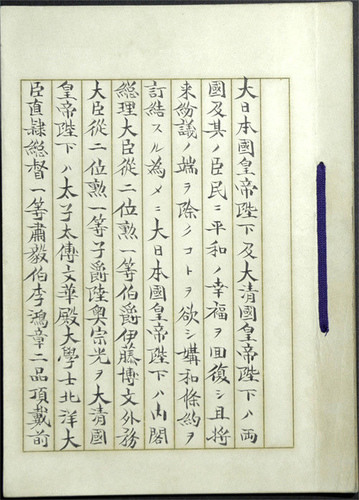 大日本國皇帝陛下及大清國皇帝陛下ハ兩
國及其ノ臣民ニ平和ノ幸福ヲ回復シ且將
来紛議ノ端ヲ除クコトヲ欲シ媾和條約ヲ
訂結スル為メニ大日本國皇帝陛下ハ内閣
総理大臣從二位勲一等伯爵伊藤博文外務
大臣從二位勲一等子爵陸奥宗光ヲ大清國
皇帝陛下ハ太子太傅文華殿大學士北洋大
臣直隷総督一等肅毅伯李鴻章二品頂戴前